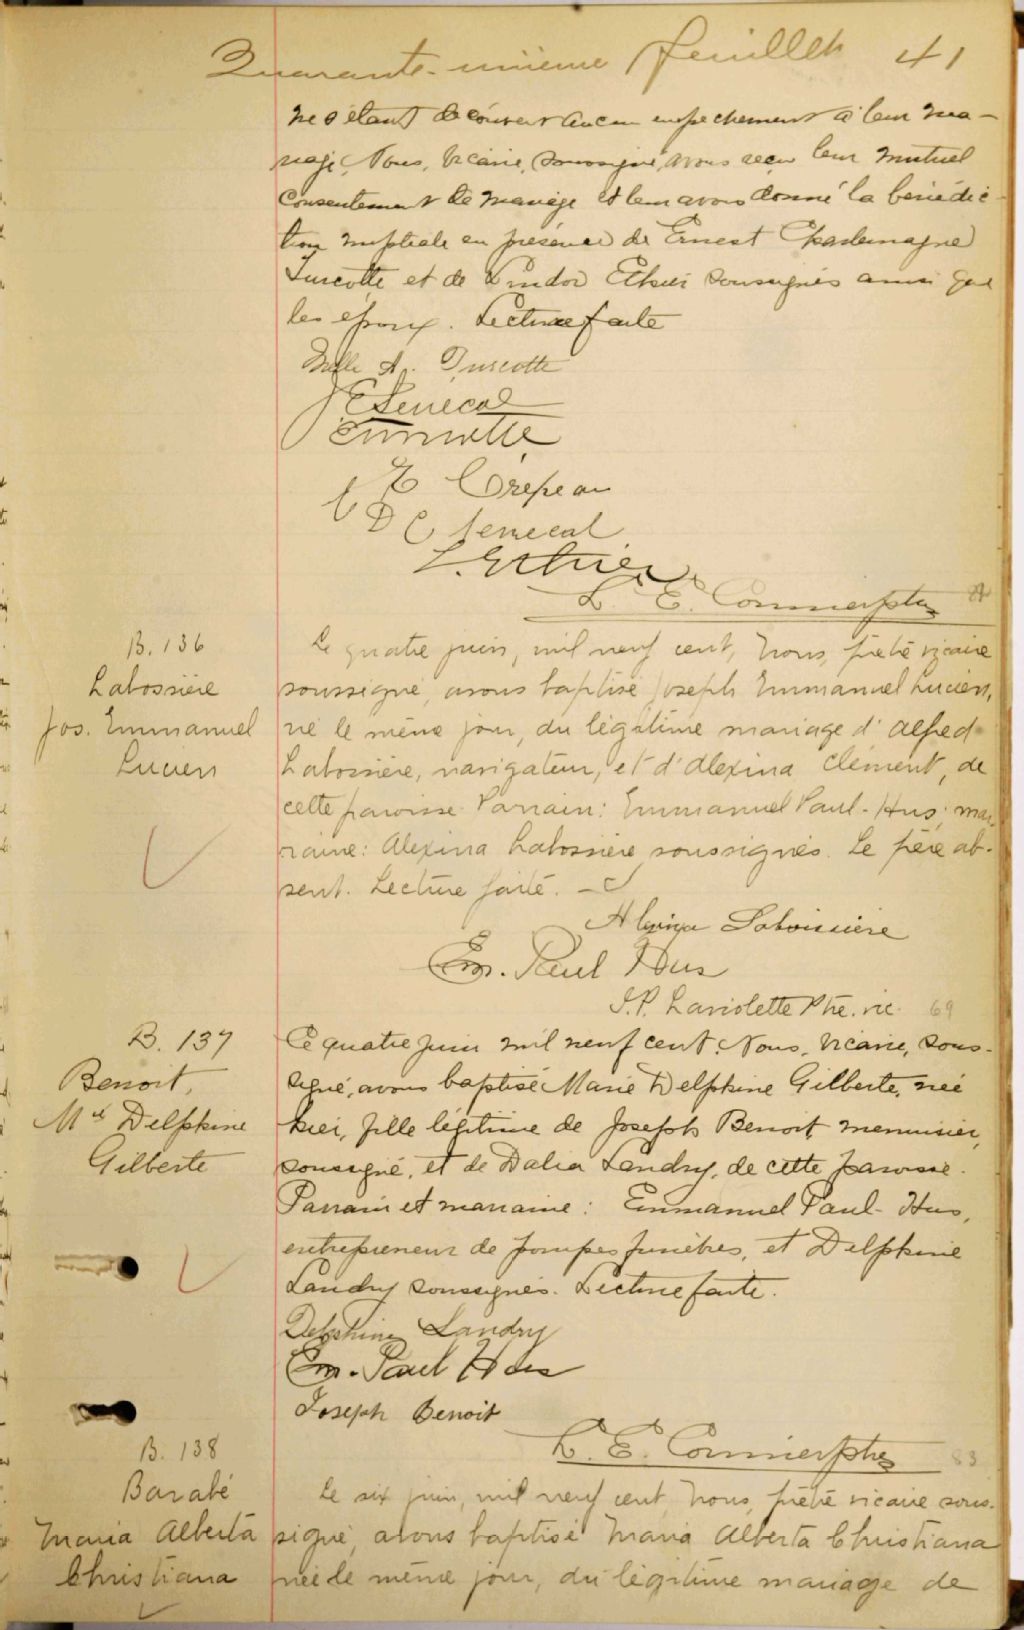 Quarante-unième feuillet 41
ne s'étant découvert aucun empêchement à leur ma-
riage, Nous, Vicaire, soussigné, avons reçu leur mutuel
consentement de mariage et leur avons donné la bénédic-
tion nuptiale en présence de Ernest Charlemagne
Turcotte et de Lindor Ethier soussignés ainsi que
les époux. Lecture faite
Melle A. Turcotte
J E Senecal
E Crépeau
D C Senecal
L. Ethier
L. E. Cormier ptre
B. 136
Labossière
Jos. Emmanuel
Lucien
Le quatre juin, mil neuf cent, nous, prêtre vicaire
soussigné, avons baptisé Joseph Emmanuel Lucien,
né le même jour, du légitime mariage d'Alfred
Labossière, navigateur, et d'Alexina Clément, de
cette paroisse. Parrain: Emmanuel Paul-Hus; mar-
raine: Alexina Labossière soussignés. Le père ab-
sent. Lecture faite.
Alexina Laboissière
Em. Paul Hus
J.P. Laviolette Ptre. vic. 69
B. 137
Benoit,
Mie Delphine
Gilberte
Ce quatre Juin mil neuf cent. Nous, Vicaire, sous-
signé, avons baptisé Marie Delphine Gilberte, née
hier, fille légitime de Joseph Benoit, menuisier,
soussigné, et de Dalia Landry, de cette paroisse.
Parrain et marraine: Emmanuel Paul-Hus,
entrepreneur de pompes funèbres, et Delphine
Landry soussignés. Lecture faite.
Delphine Landry
Em. Paul Hus
Joseph Benoit
L. E. Cormier ptre 83
B. 138
Barabé
Maria Alberta
Christiana
Le six juin, mil neuf cent, nous, prêtre vicaire sous-
signé, avons baptisé Maria Alberta Christiana
née le même jour, du légitime mariage de